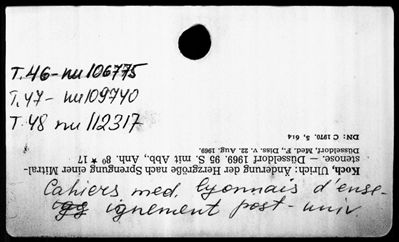 T.46-nu106775
T.47- nu109740
T.48 nu112317
Cahiers med. lyonnais d'ense-
ignement post-univ.
Koch, Ulrich: Änderung der Herzgröße nach Sprengung einer Mitral-
stenose. – Düsseldorf 1969. 95 S. mit Abb., Anh. 8° * 17
Düsseldorf, Med. F., Diss. v. 22. Aug. 1969.
DN: C 1970, 5, 614